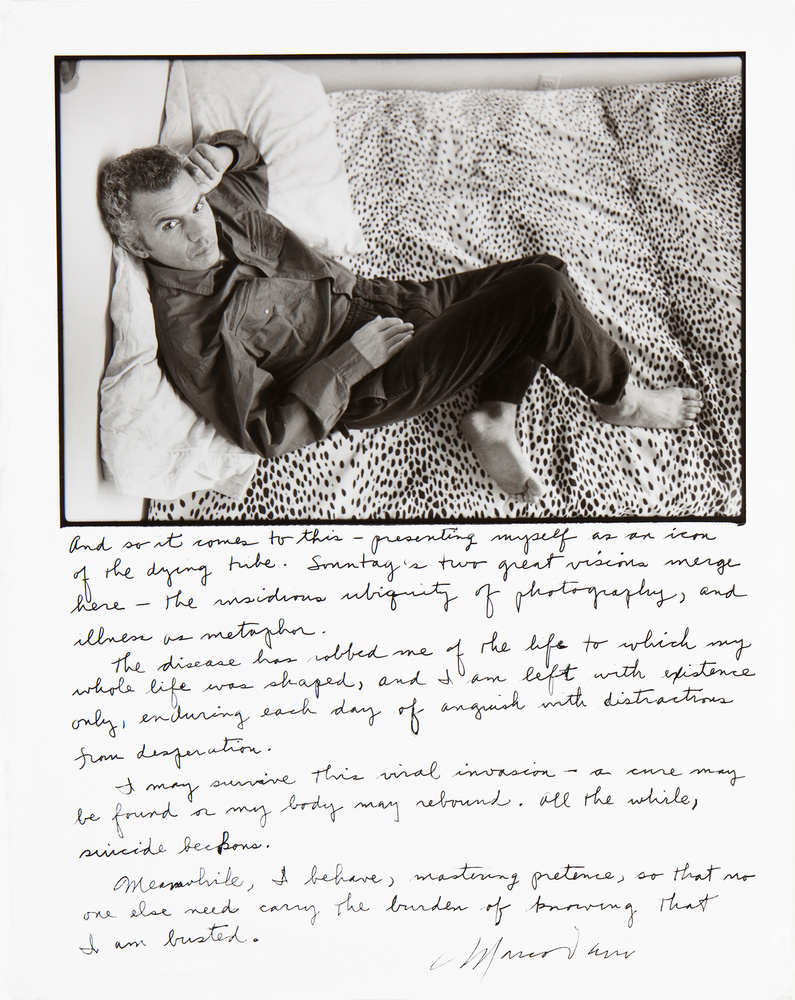 And so it comes to this – presenting myself as an icon
of the dying tribe. Sonntag's two great visions merge
here – the insidious ubiquity of photography, and
illness as metaphor.
The disease has robbed me of the life to which my
whole life was shaped, and I am left with existence
only, enduring each day of anguish with distractions
from desperation.
I may survive this viral invasion – a cure may
be found or my body may rebound. All the while,
suicide beckons.
Meanwhile, I behave, mastering pretence, so that no
one else need carry the burden of knowing that
I am busted.